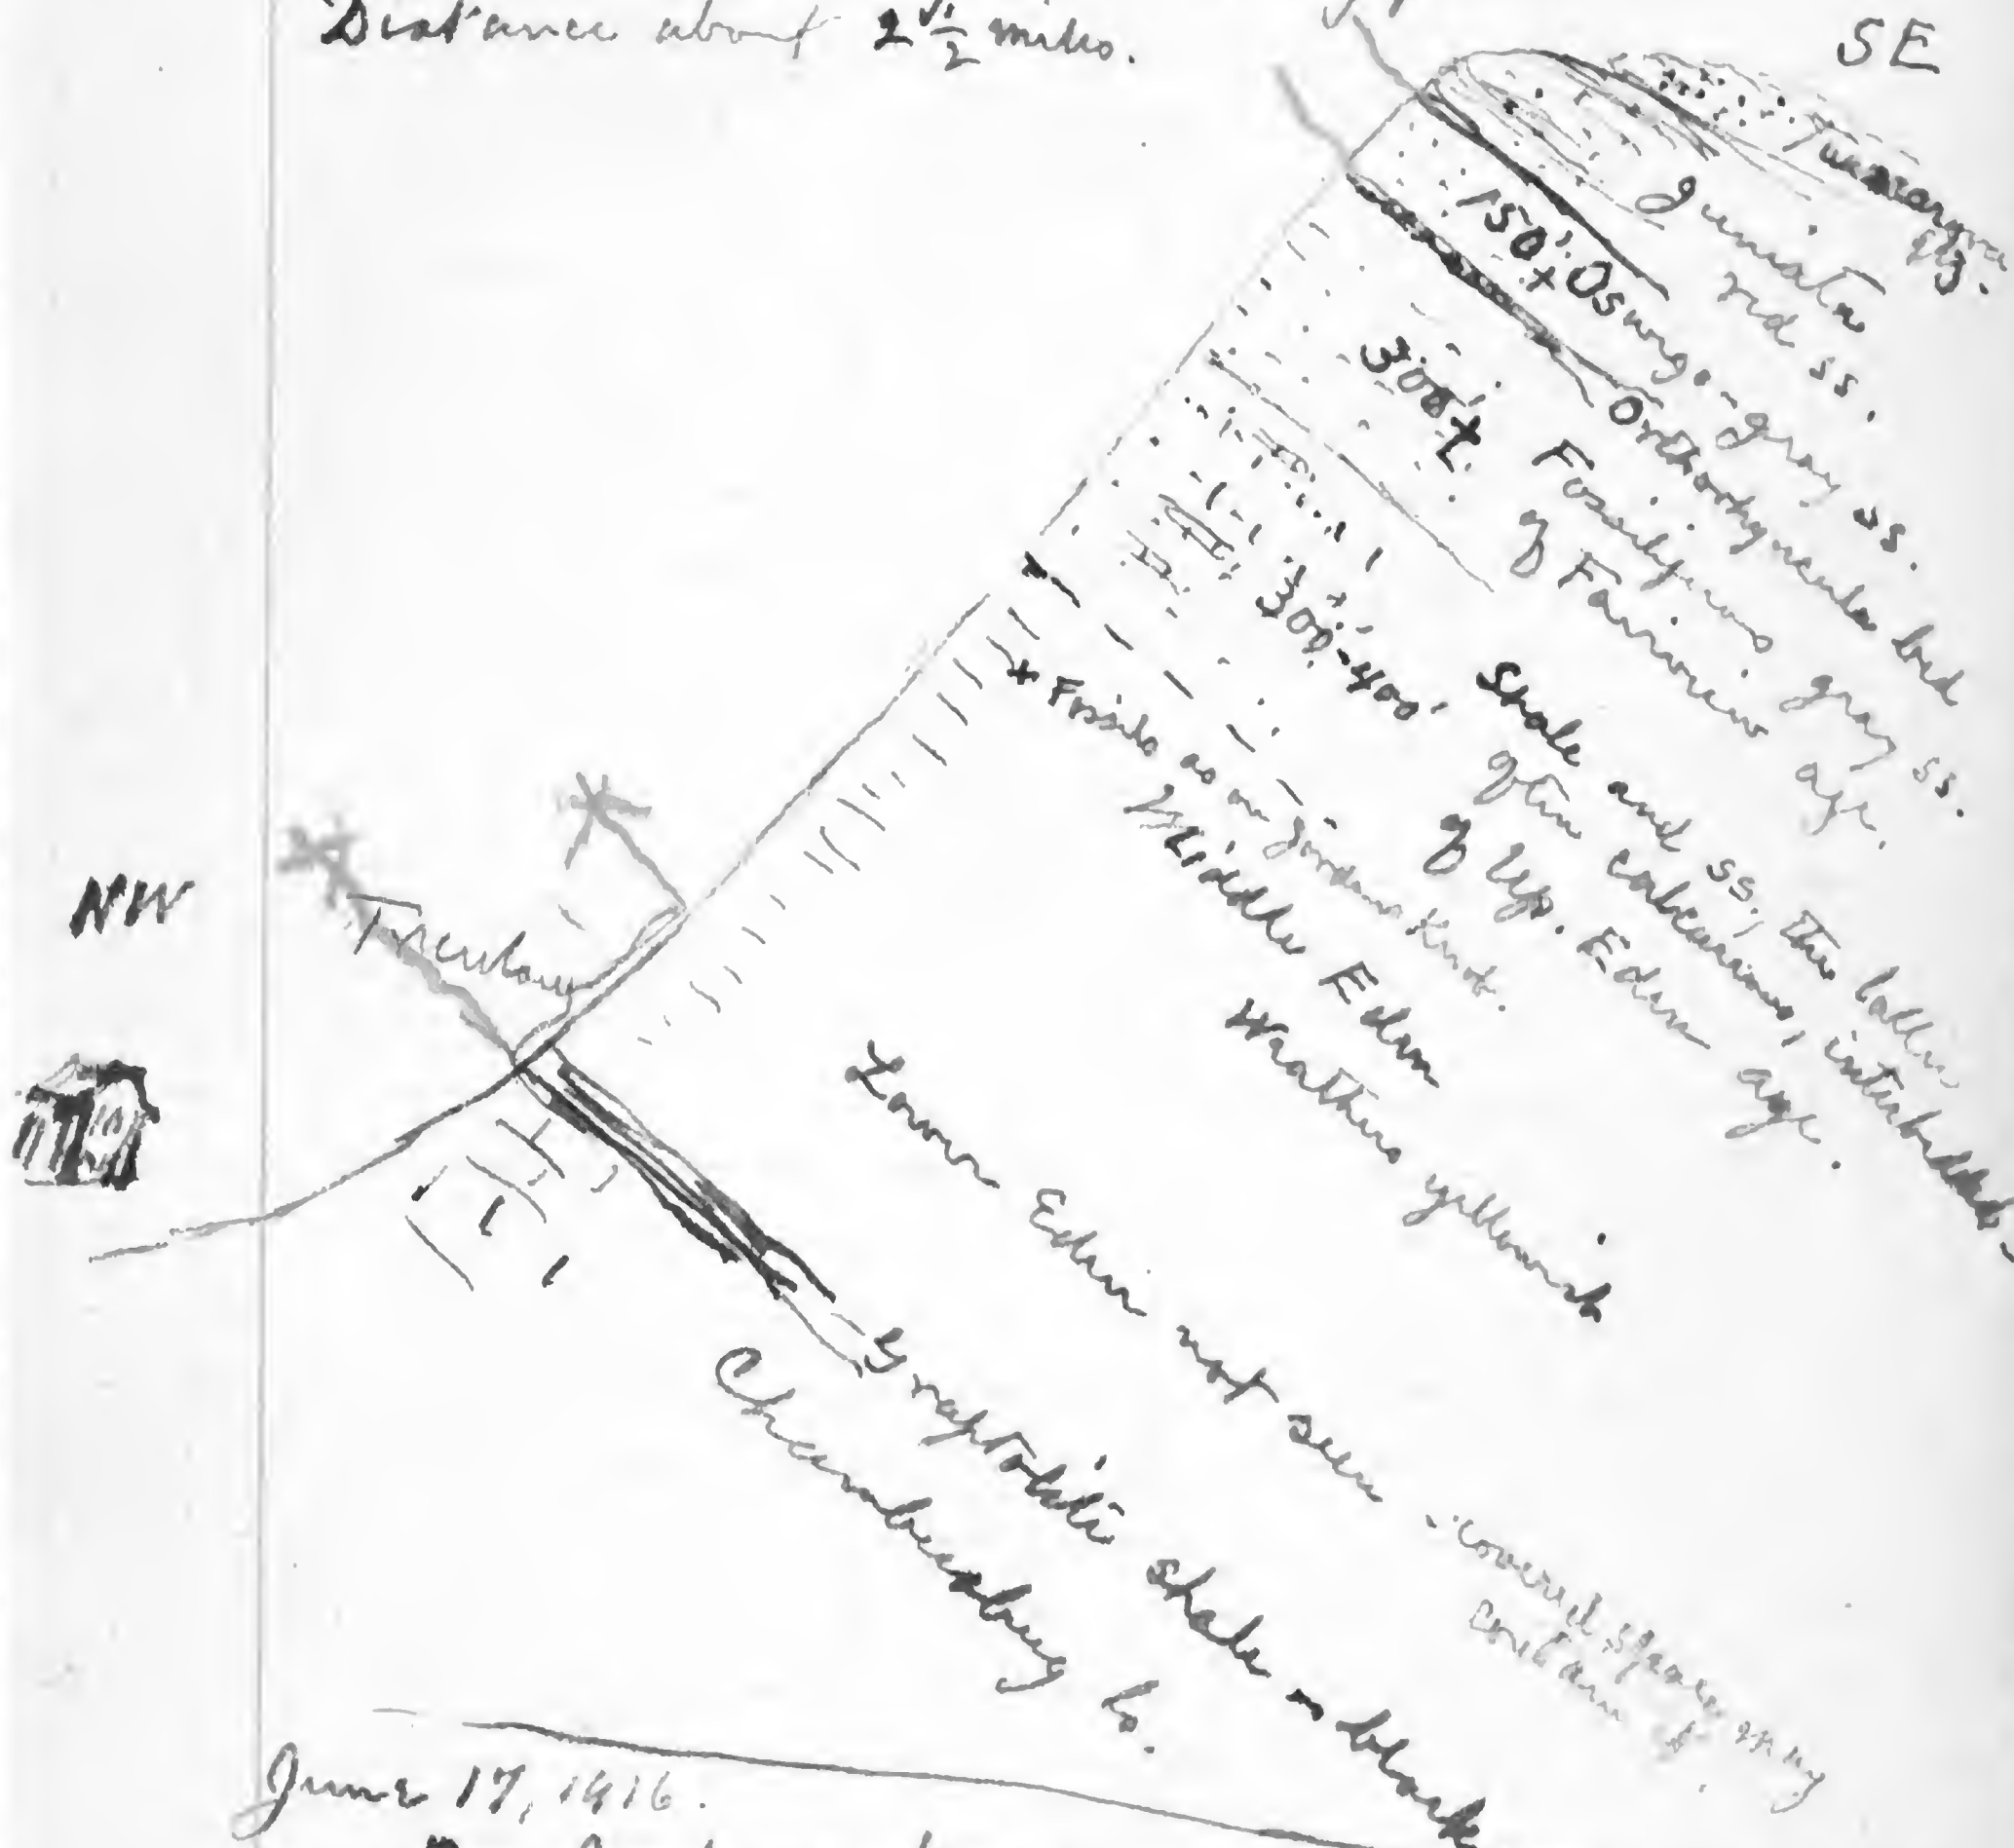 Distance about 2 1/2 miles.
SE
Tuscarora
qtz.
Juniata
red ss.
150'± Oswego - gray ss.
Orthorhyncula bed
300'± Fossiliferous gray ss.
of Fairview age.
300'-400' Shale and ss., the latter
often calcareous, interbedded,
of Up. Eden age.
+ Fossils as on Jordans Knob.
Middle Eden
Weathers yellowish
Lower Eden not seen
covered space may
contain it.
NW
Trenton
Graptolite shale - black
Chambersburg ls.
June 17, 1916.